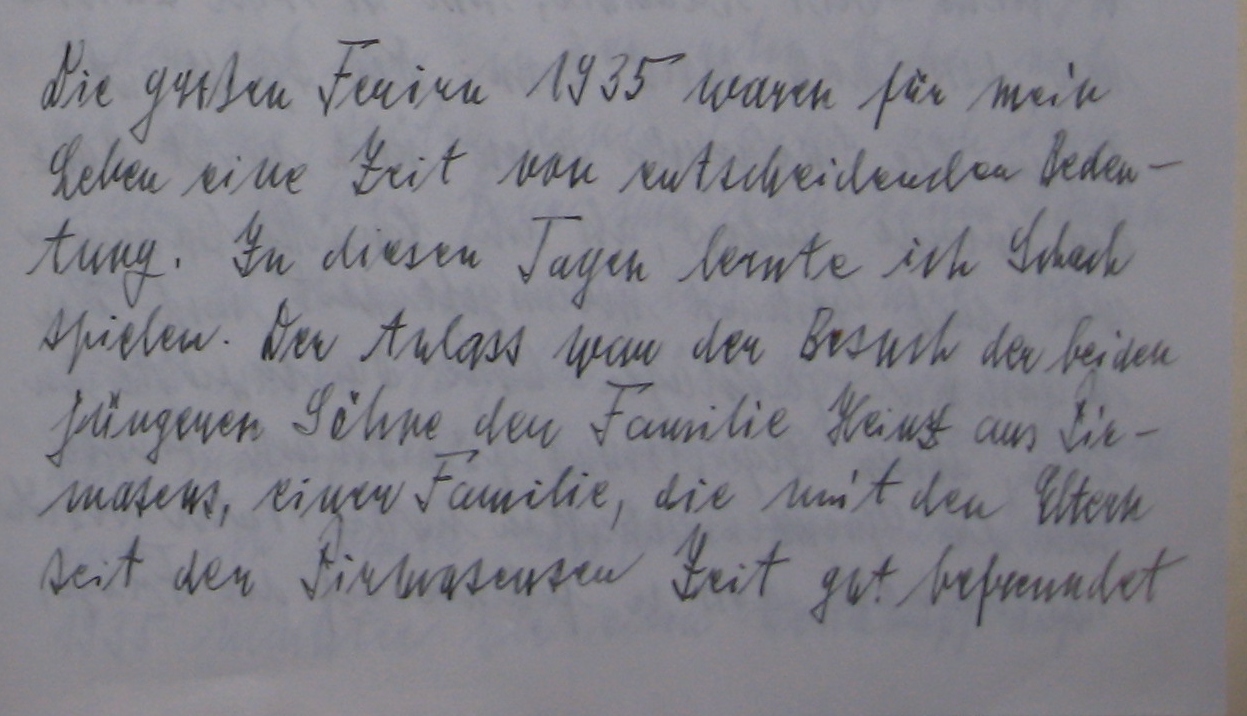 Die großen Ferien 1935 waren für mein
Leben eine Zeit von entscheidender Bedeu-
tung. In diesen Tagen lernte ich Schach
spielen. Der Anlass war der Besuch der beiden
jüngeren Söhne der Familie Heintz aus Pir-
masens, einer Familie, die mit den Eltern
seit der Pirmasenser Zeit gut befreundet